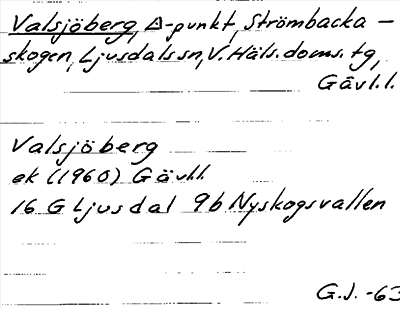 Valsjöberg, △-punkt, Strömbacka-
skogen, Ljusdals sn, V. Häls. doms. tg,
Gävl.l.
Valsjöberg
ek (1960) Gävl.l.
16 G Ljusdal 9b Nyskogsvallen
G.J. -63